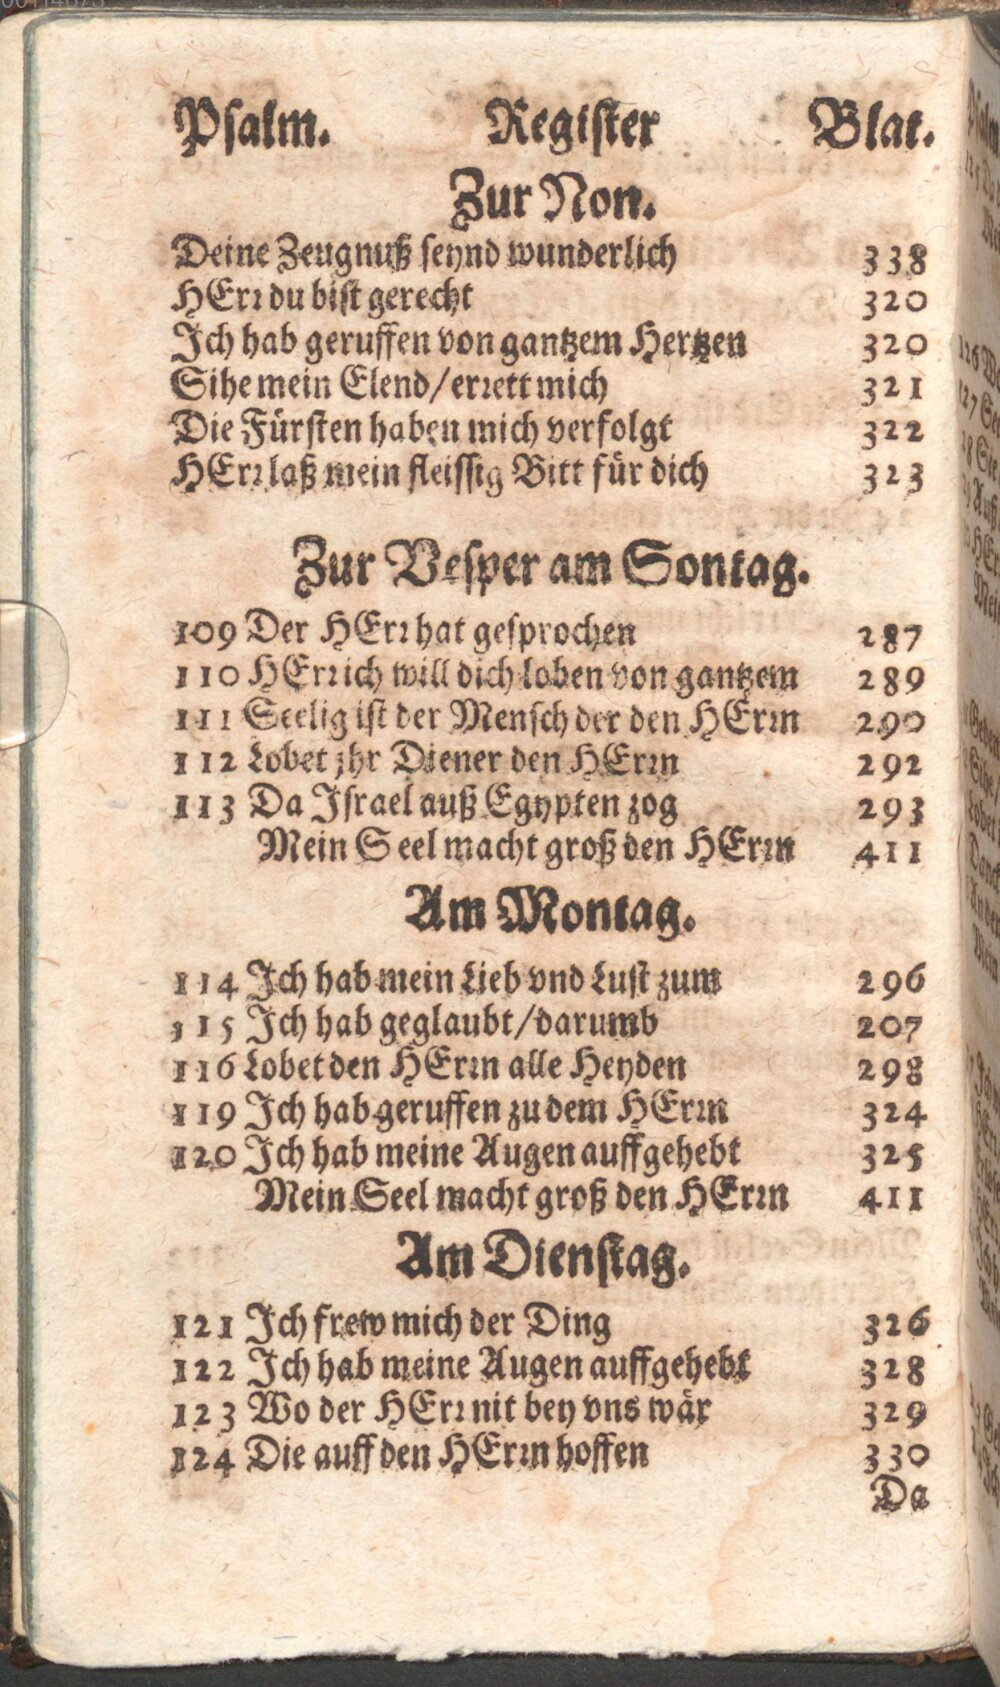 Psalm. Register Blat.
Zur Non.
Deine Zeugnuß seynd wunderlich 338
HErr du bist gerecht 320
Ich hab geruffen von gantzem Hertzen 320
Sihe mein Elend/errett mich 321
Die Fürsten haben mich verfolgt 322
HErr laß mein fleissig Bitt für dich 323
Zur Vesper am Sontag.
109 Der HErr hat gesprochen 287
110 HErr ich will dich loben von gantzem 289
111 Seelig ist der Mensch der den HErrn 290
112 Lobet jhr Diener den HErrn 292
113 Da Israel auß Egypten zog 293
Mein Seel macht groß den HErrn 411
Am Montag.
114 Ich hab mein Lieb vnd Lust zum 296
115 Ich hab geglaubt/darumb 207
116 Lobet den HErrn alle Heyden 298
119 Ich hab geruffen zu dem HErrn 324
120 Ich hab meine Augen auffgehebt 325
Mein Seel macht groß den HErrn 411
Am Dienstag.
121 Ich frew mich der Ding 326
122 Ich hab meine Augen auffgehebt 328
123 Wo der HErr nit bey vns wär 329
124 Die auff den HErrn hoffen 330
Da